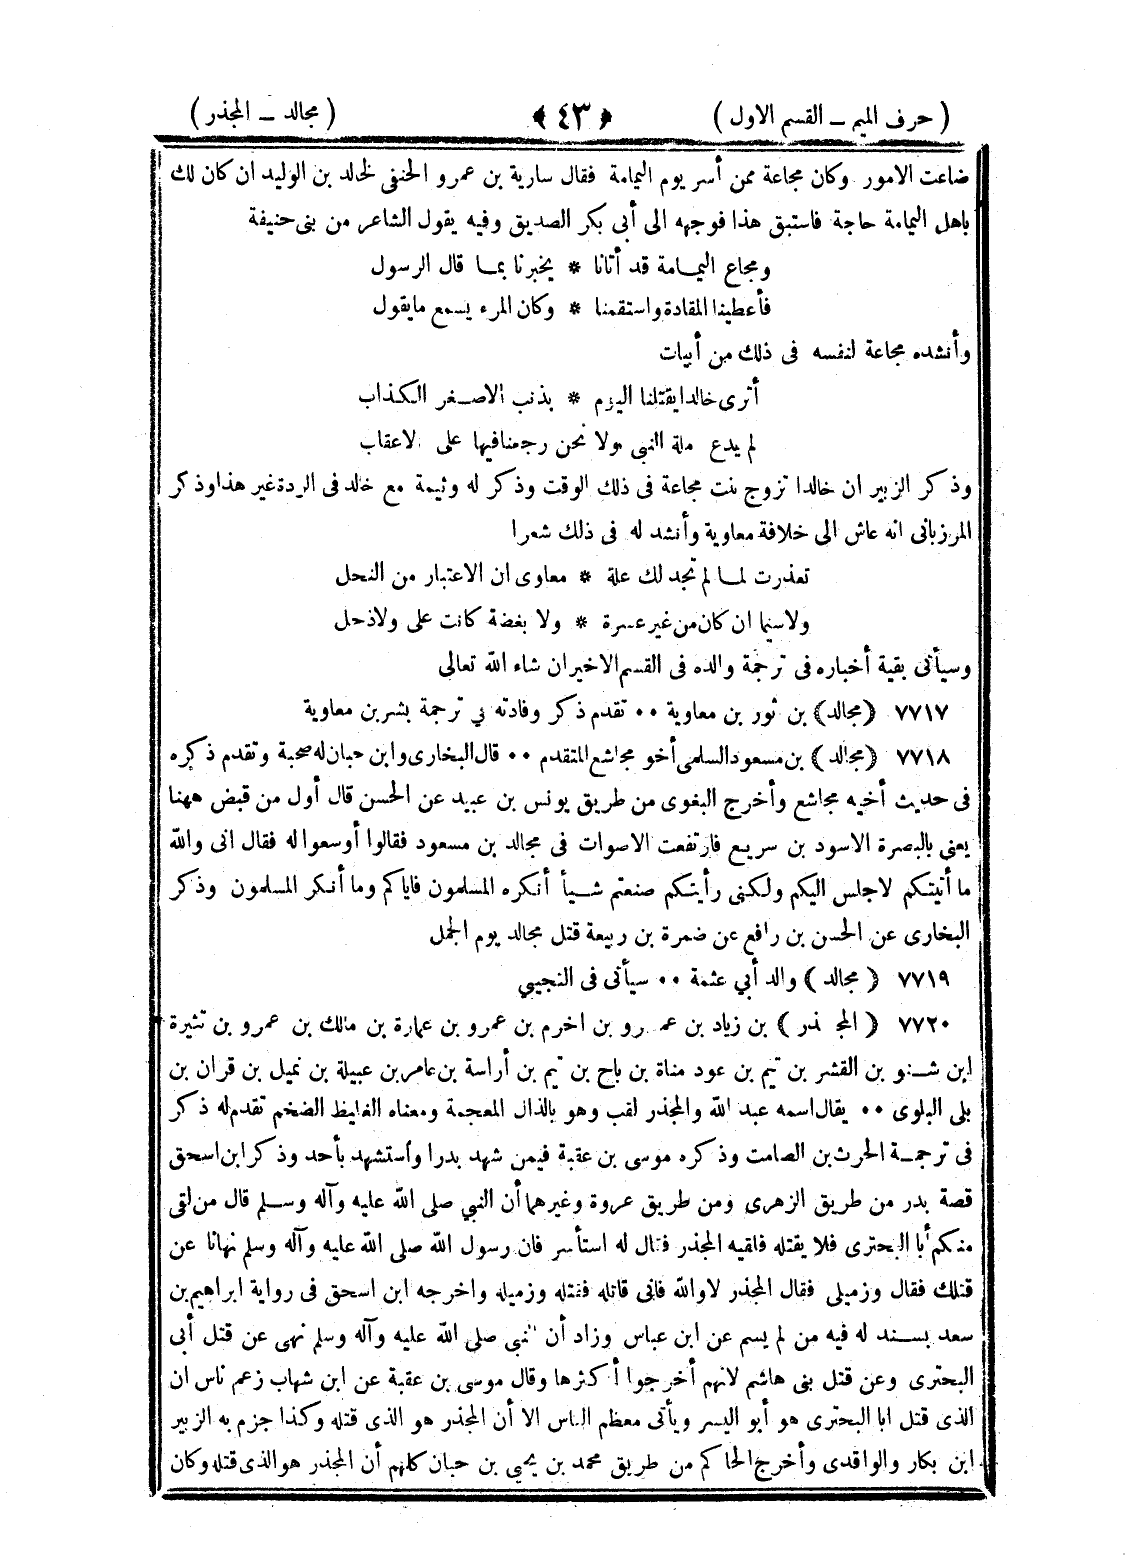 ( حرف الميم ـ القسم الاول ) ﴿ ٤٣ ﴾ ( مجالد ـ المجذر )
ضاعت الامور وكان مجاعة ممن أسر يوم اليمامة فقال سارية بن عمرو الحنفى لخالد بن الوليد ان كان لك
باهل اليمامة حاجة فاستبق هذا فوجهه الى أبي بكر الصديق وفيه يقول الشاعر من بنى حنيفة
ومجاع اليمامة قد أتانا * يخبرنا بما قال الرسول
فأعطينا المقادة واستقمنا * وكان المرء يسمع مايقول
وأنشده مجاعة لنفسه فى ذلك من أبيات
أترى خالدا يقتلنا اليوم * بذنب الاصغر الكذاب
لم يدع ملة النبى ولا نحن رجعنا فيها على الاعقاب
وذكر الزبير ان خالدا تزوج بنت مجاعة فى ذلك الوقت وذكر له وثيمة مع خالد فى الردة غير هذا وذكر
المرزبانى انه عاش الى خلافة معاوية وأنشد له فى ذلك شعرا
تعذرت لما لم تجد لك علة * معاوى ان الاعتبار من النحل
ولاسيما ان كان من غير عسرة * ولا بغضة كانت على ولاذحل
وسيأتى بقية أخباره فى ترجمة والده فى القسم الاخيران شاء الله تعالى
٧٧١٧ ﴿مجالد﴾ بن ثور بن معاوية ٠٠ تقدم ذكر وفادته في ترجمة بشر بن معاوية
٧٧١٨ ﴿مجالد﴾ بن مسعود السلمى أخو مجاشع المتقدم ٠٠ قال البخارى وابن حبان له صحبة وتقدم ذكره
فى حديث أخيه مجاشع وأخرج البغوى من طريق يونس بن عبيد عن الحسن قال أول من قبض ههنا
يعنى بالبصرة الاسود بن سريع فارتفعت الاصوات فى مجالد بن مسعود فقالوا أوسعوا له فقال انى والله
ما أتيتكم لاجلس اليكم ولكنى رأيتكم صنعتم شيأ أنكره المسلمون فاياكم وما أنكر المسلمون وذكر
البخارى عن الحسن بن رافع عن ضمرة بن ربيعة قتل مجالد يوم الجمل
٧٧١٩ ﴿ مجالد ﴾ والد أبي عثمة ٠٠ سيأتى فى النجيبي
٧٧٢٠ ﴿ المجذر ﴾ بن زياد بن عمرو بن اخرم بن عمرو بن عمارة بن مالك بن عمرو بن تثيرة
ابن شنو بن القشر بن تيم بن عود مناة بن باح بن تيم بن أراسة بن عامر بن عبيلة بن نميل بن قران بن
بلى البلوى ٠٠ يقال اسمه عبد الله والمجذر لقب وهو بالذال المعجمة ومعناه الغليظ الضخم تقدم له ذكر
فى ترجمة الحرث بن الصامت وذكره موسى بن عقبة فيمن شهد بدرا واستشهد بأحد وذكر ابن اسحق
قصة بدر من طريق الزهرى ومن طريق عروة وغيرهما أن النبي صلى الله عليه وآله وسلم قال من لقى
منكم أبا البحترى فلا يقتله فلقيه المجذر فقال له استأسر فان رسول الله صلى الله عليه وآله وسلم نهانا عن
قتلك فقال وزميلى فقال المجذر لا والله فانى قاتله فقتله وزميله واخرجه ابن اسحق فى رواية ابراهيم بن
سعد بسند له فيه من لم يسم عن ابن عباس وزاد أن النبى صلى الله عليه وآله وسلم نهى عن قتل أبى
البحترى وعن قتل بنى هاشم لانهم أخرجوا أكثرها وقال موسى بن عقبة عن ابن شهاب زعم ناس ان
الذى قتل ابا البحترى هو أبو اليسر ويأتى معظم الناس الا أن المجذر هو الذى قتله وكذا جزم به الزبير
ابن بكار والواقدى وأخرج الحاكم من طريق محمد بن يحيى بن حبان كلهم أن المجذر هو الذى قتله وكان